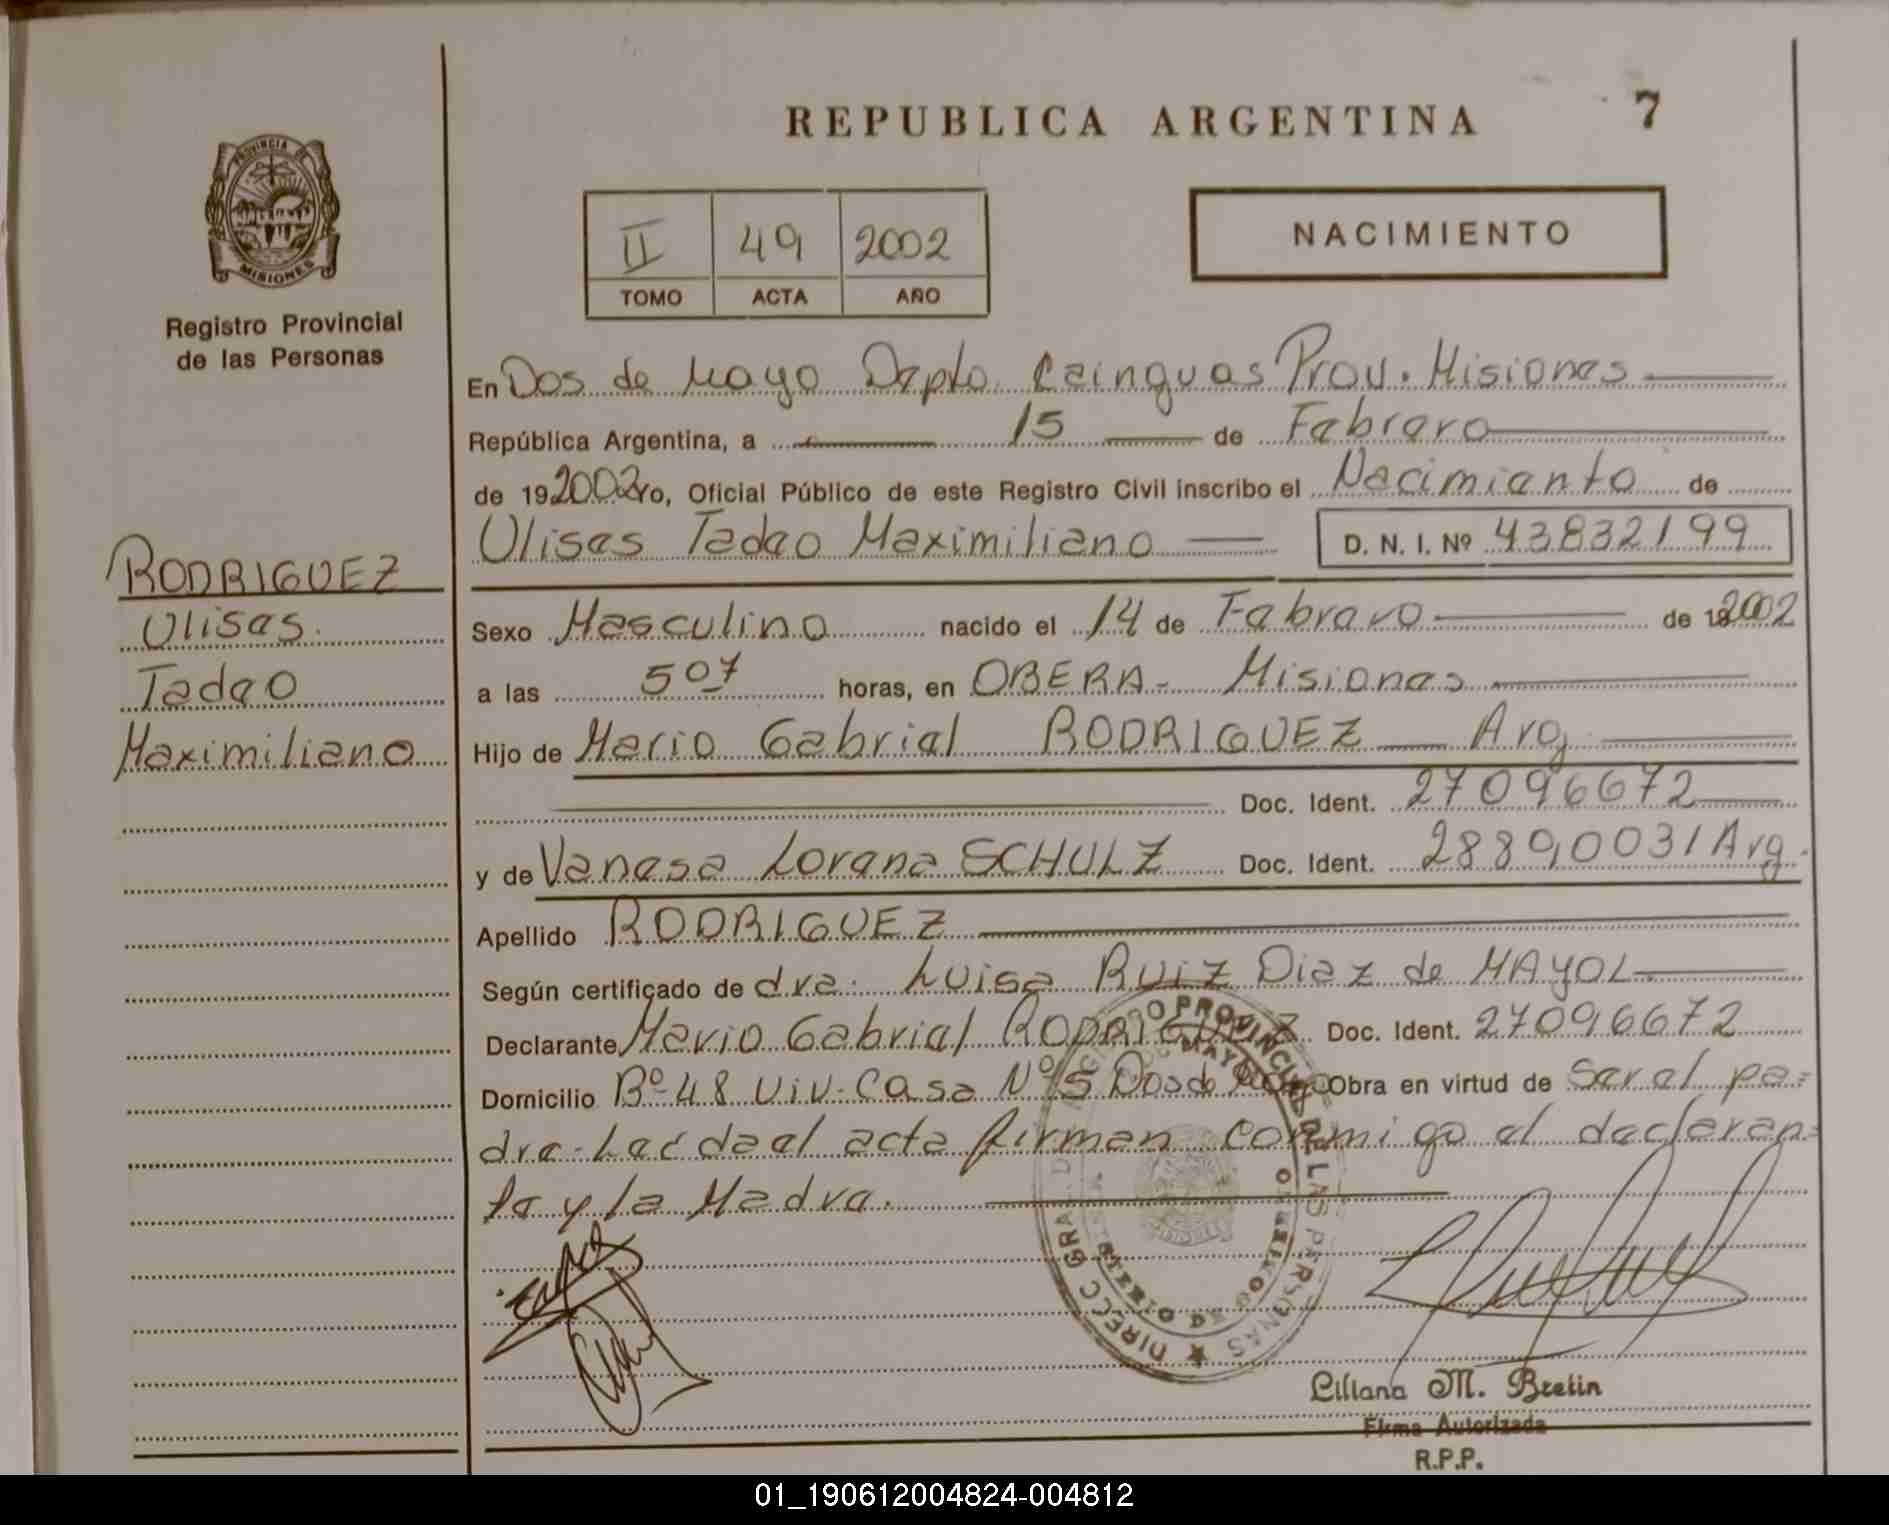 REPUBLICA ARGENTINA
7
PROVINCIA DE
MISIONES
Registro Provincial
de las Personas
II 49 2002
TOMO ACTA AÑO
NACIMIENTO
En Dos de Mayo Depto. Cainguas Prov. Misiones
República Argentina, a 15 de Febrero
de 192002 Yo, Oficial Público de este Registro Civil inscribo el Nacimiento de
Ulises Tadeo Maximiliano D. N. I. Nº 43832199
RODRIGUEZ
Ulises
Tadeo
Maximiliano
Sexo Masculino nacido el 14 de Febrero de 192002
a las 5 07 horas, en OBERA - Misiones
Hijo de Mario Gabriel RODRIGUEZ Arg.
Doc. Ident. 27096672
y de Vanesa Lorena SCHULZ Doc. Ident. 28890031 Arg.
Apellido RODRIGUEZ
Según certificado de dra. Luisa Ruiz Diaz de MAYOL
Declarante Mario Gabriel RODRIGUEZ Doc. Ident. 27096672
Domicilio Bº 48 Viv. Casa Nº 5 Dos de Mayo Obra en virtud de Ser el pa=
dre. Leída el acta firman conmigo el declaran=
te y la Madre.
DIRECC GRAL DE REGISTRO PROVINCIAL DE LAS PERSONAS
MINISTERIO DE GOBIERNO
Liliana M. Bretin
Firma Autorizada
R.P.P.
01_190612004824-004812